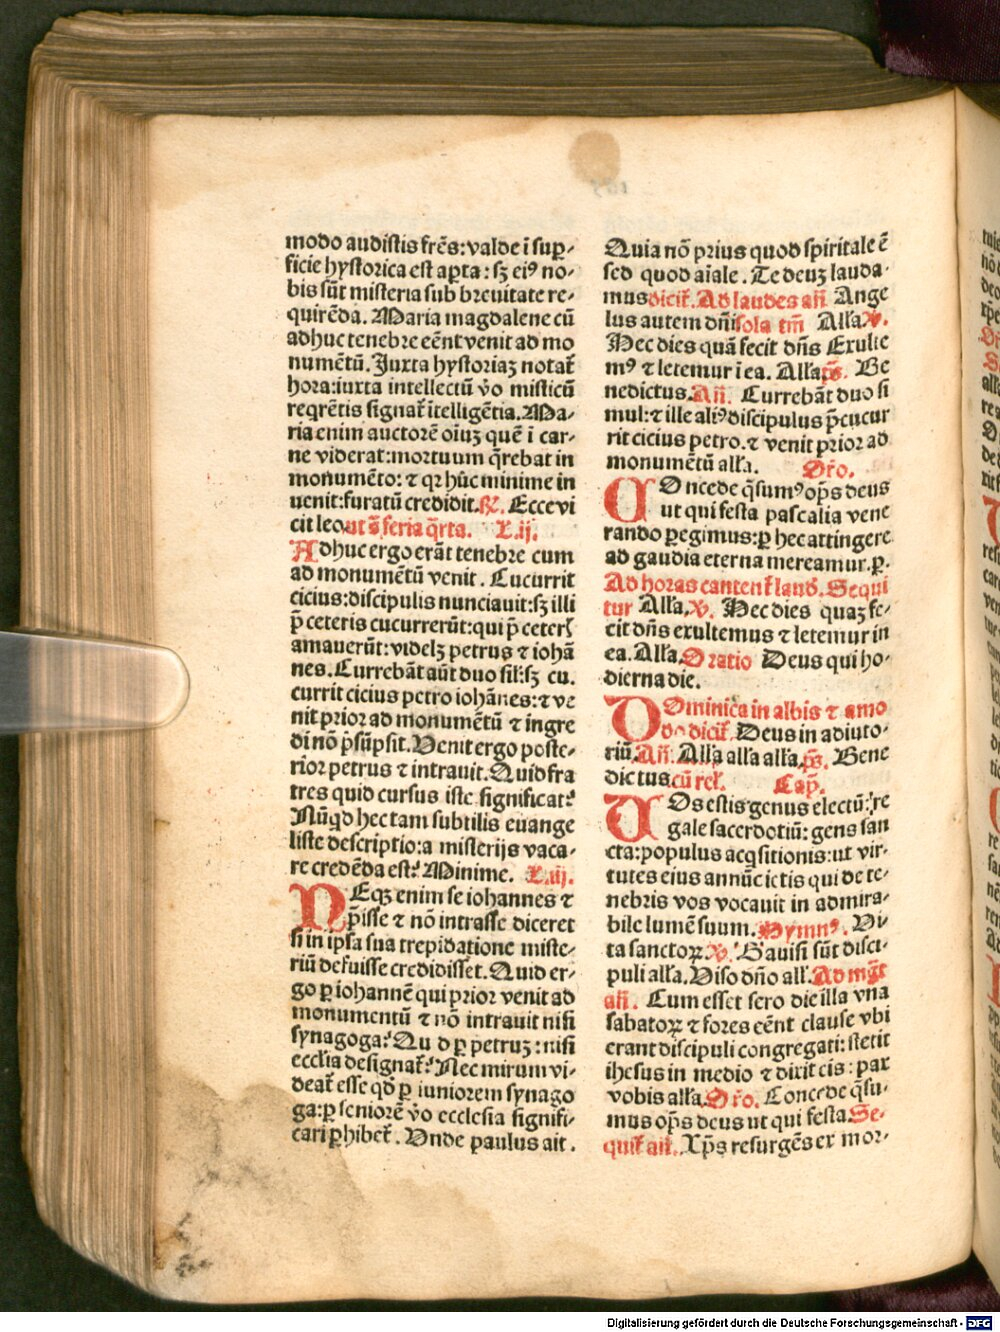 modo audistis frēs: valde ī sup̲-
ficie hystorica est ap̲ta: sꝫ eiꝰ no-
bis sūt misteria sub breuitate re-
quirēda. Maria magdalene cū
adhuc tenebre eēnt venit ad mo
numētū. Juxta hystoriaꝫ notat᷑
hora: iuxta intellectū ꝟo misticū
reqrētis signat᷑ ītelligētia. Ma-
ria enim auctorē oīuꝫ quē ī car-
ne viderat: mortuum q̄rebat in
monumēto: ⁊ qꝛ hūc minime in
uenit: furatū credidit. ℟. Ecce vi
cit leo. ut s̄ feria q̄rta. L.ij.
Adhuc ergo erāt tenebre cum
ad monumētū venit. Cucurrit
cicius: discipulis nunciauit: sꝫ illi
p̄ ceteris cucurrerūt: qui p̄ ceterꝭ
amauerūt: videlꝫ petrus ⁊ iohā
nes. Currebāt aūt duo sil̓: sꝫ cu.
currit cicius petro iohānes: ⁊ ve
nit prior ad monumētū ⁊ ingre
di nō p̄sūpsit. Venit ergo poste-
rior petrus ⁊ intrauit. Quid fra
tres quid cursus iste significat?
Nūqd hec tam subtilis euange
liste descriptio: a misterijs vaca-
re credēda est? Minime. L.iij.
NEqꝫ enim se iohannes ⁊
p̄isse ⁊ nō intrasse diceret
si in ipsa sua trepidatione miste-
riū defuisse credidisset. Quid er-
go ꝑ iohannē qui prior venit ad
monumentū ⁊ nō intrauit nisi
synagoga? Qu d ꝑ petruꝫ: nisi
eccl̓ia designat᷑? Nec mirum vi-
deat᷑ esse qd̓ ꝑ iuniorem synago
ga: ꝑ seniorē ꝟo ecclesia signifi-
cari ꝑhibet᷑. Vnde paulus ait.
Quia nō prius quod spiritale ē
sed quod aīale. Te deuꝫ lauda-
mus dicit᷑. Ad laudes an̄. Ange
lus autem dn̄i sola tm̄ All̓a ℣.
Hec dies quā fecit dn̄s Exulte
mꝰ ⁊ letemur ī ea. All̓a p̄s. Be
nedictus. An̄. Currebāt duo si
mul: ⁊ ille aliꝰ discipulus p̄cucur
rit cicius petro. ⁊ venit prior ad
monumētū all̓a. Or̄o.
COncede q̄sumꝰ op̄s deus
ut qui festa pascalia vene
rando ꝑegimus: ꝑ hec attingere
ad gaudia eterna mereamur. ꝑ.
Ad horas cantent᷑ laud̓. Sequi
tur All̓a. ℣. Hec dies quaꝫ fe-
cit dn̄s exultemus ⁊ letemur in
ea. All̓a. Oratio Deus qui ho-
dierna die.
DOminica in albis ⁊ amo
do dicit᷑. Deus in adiuto-
riū. An̄. All̓a all̓a all̓a. p̄s. Bene
dictus cū rel̓. Cap̄.
VOs estis genus electū: re
gale sacerdotiū: gens san
cta: populus acqsitionis: ut vir-
tutes eius annūcietis qui de te-
nebris vos vocauit in admira-
bile lumē suum. Hymnꝰ. Vi-
ta sanctoꝝ ℣. Gauisi sūt disci-
puli all̓a. Viso dn̄o all̓. Ad mgt̄
an̄. Cum esset sero die illa vna
sabatoꝝ ⁊ fores eēnt clause vbi
erant discipuli congregati: stetit
ihesus in medio ⁊ dixit eis: pax
vobis all̓a. Or̄o. Concede q̄su-
mus op̄s deus ut qui festa. Se-
quit᷑ an̄. Xp̄s resurgēs ex mor-
Digitalisierung gefördert durch die Deutsche Forschungsgemeinschaft - DFG